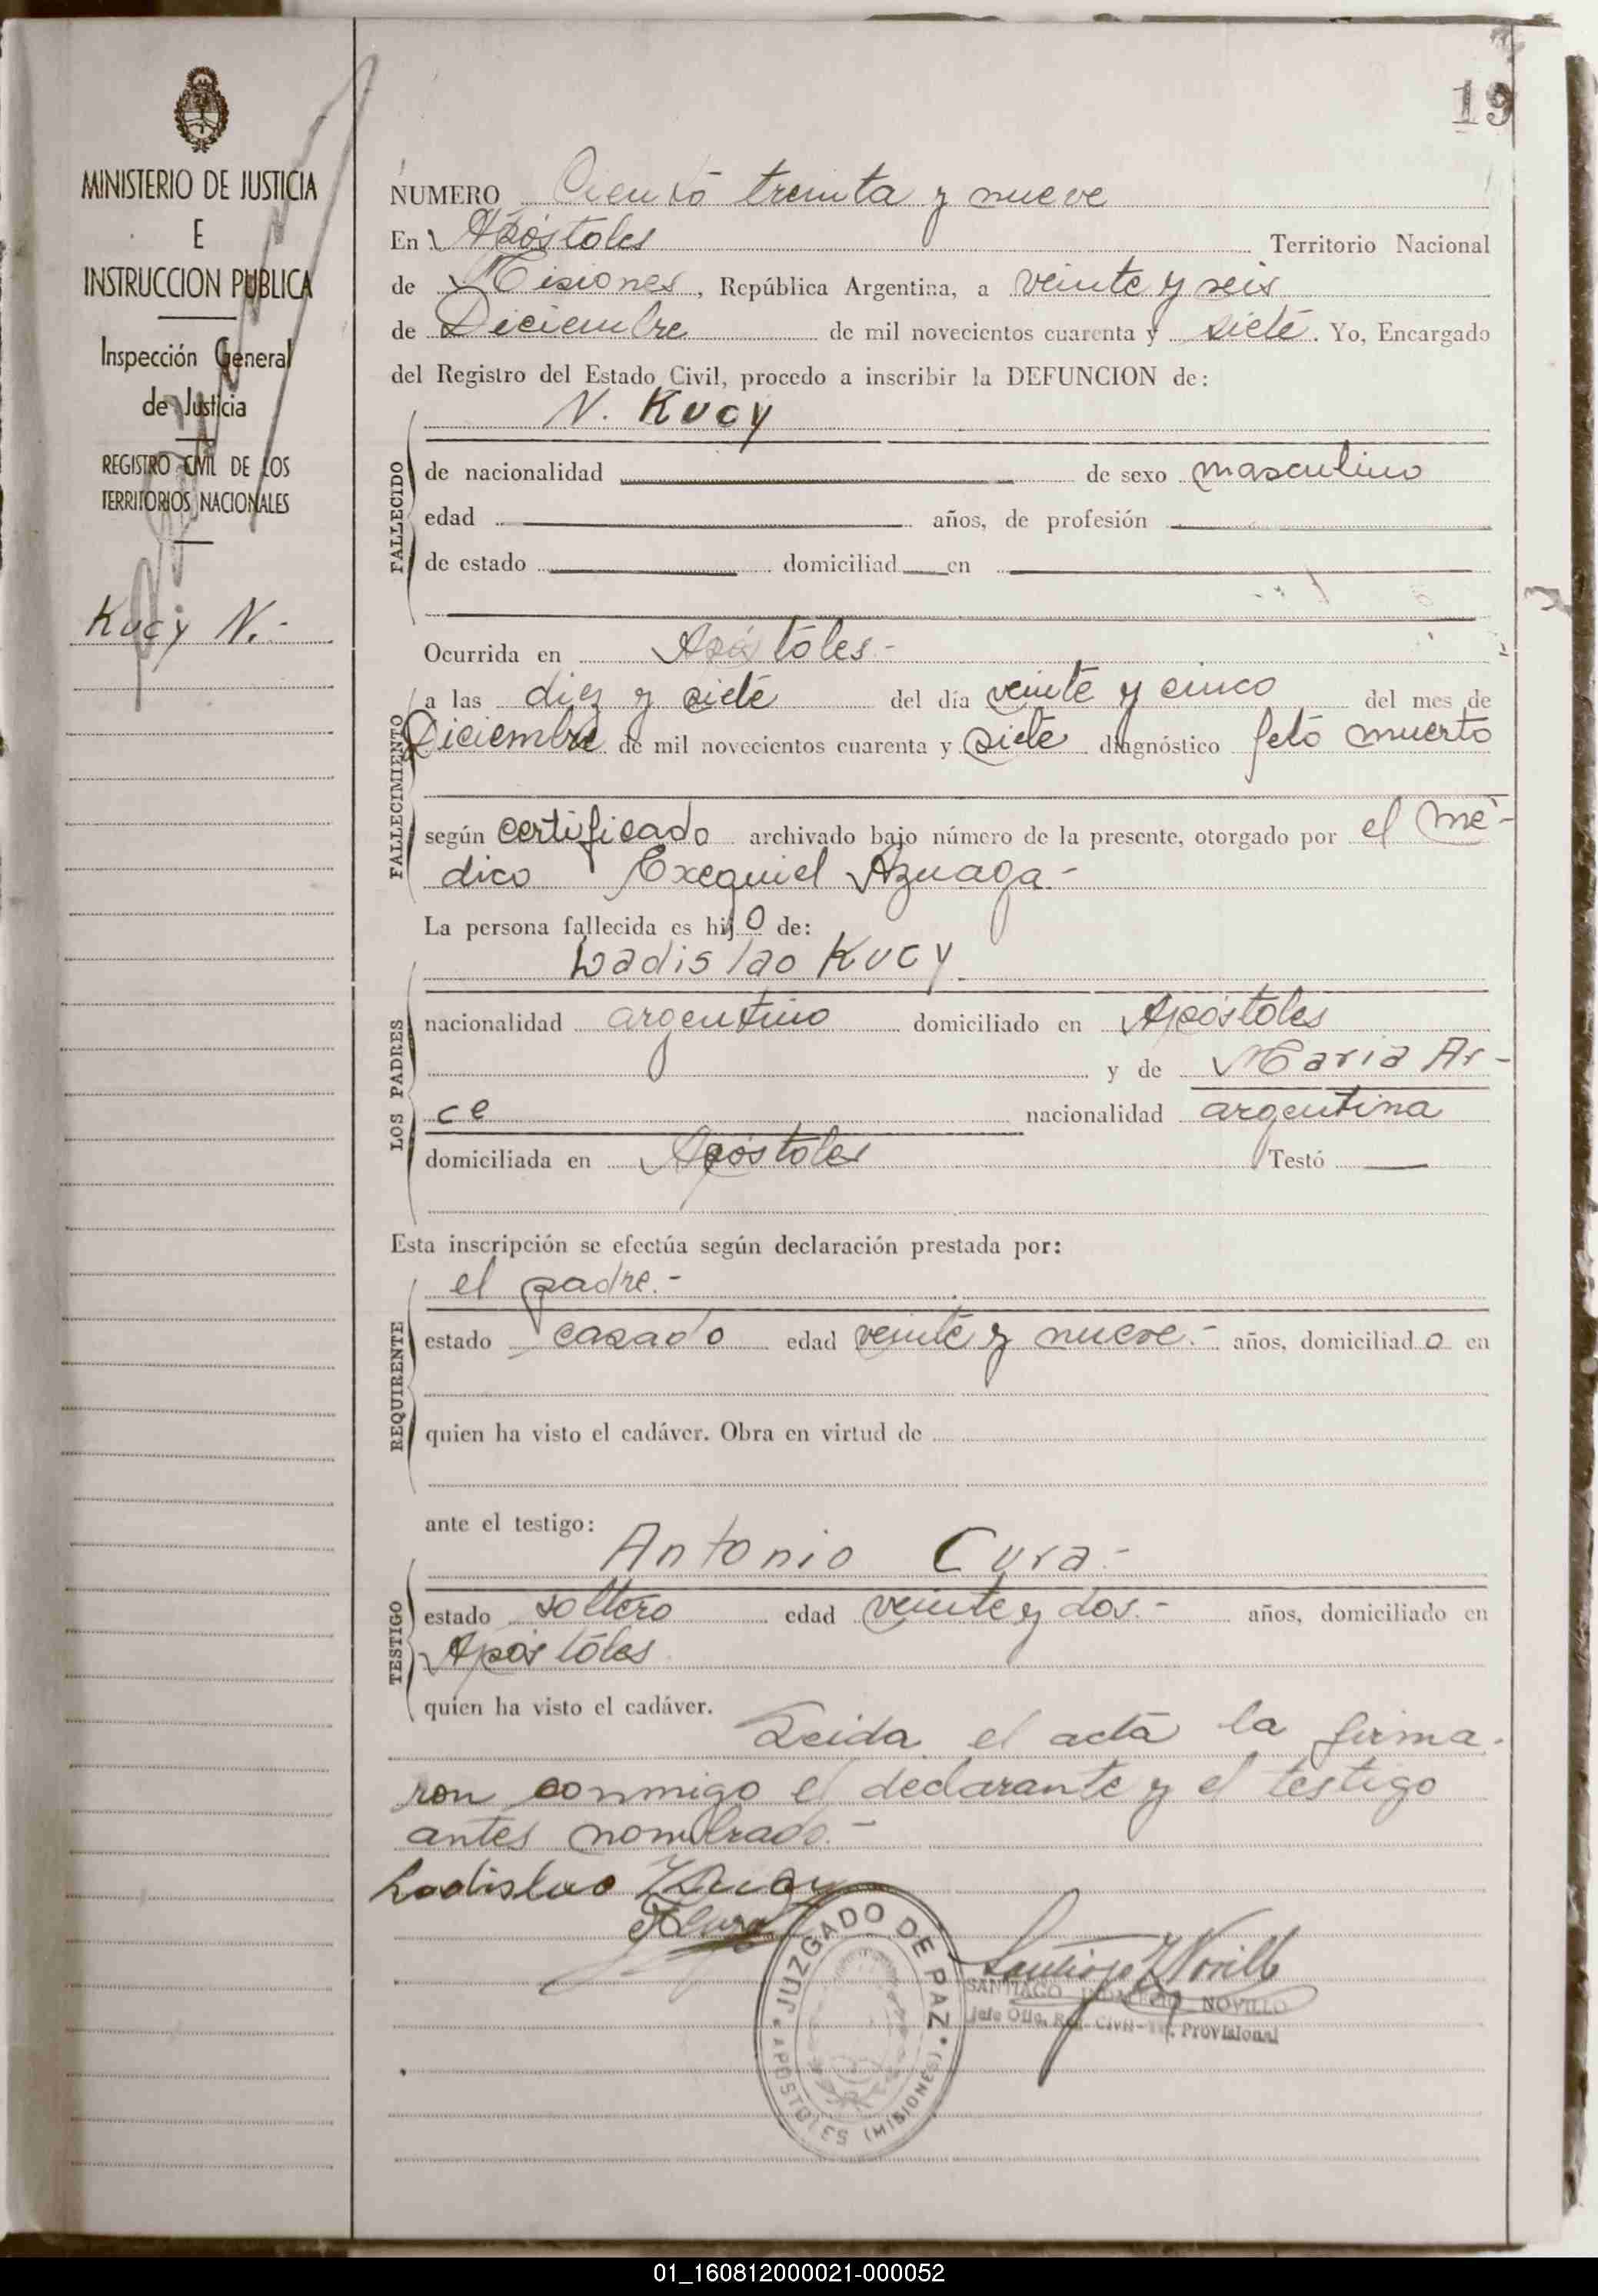 19
MINISTERIO DE JUSTICIA
E
INSTRUCCION PUBLICA
Inspección General
de Justicia
REGISTRO CIVIL DE LOS
TERRITORIOS NACIONALES
Kucy N.-
NUMERO Ciento treinta y nueve
En Apóstoles Territorio Nacional
de Misiones, República Argentina, a veinte y seis
de Diciembre de mil novecientos cuarenta y siete. Yo, Encargado
del Registro del Estado Civil, procedo a inscribir la DEFUNCION de:
N. Kucy
FALLECIDO
de nacionalidad de sexo masculino
edad años, de profesión
de estado domiciliad en
Ocurrida en Apóstoles-
FALLECIMIENTO
a las diez y siete del día veinte y cinco del mes de
Diciembre de mil novecientos cuarenta y siete diagnóstico feto muerto
según certificado archivado bajo número de la presente, otorgado por el mé-
dico Exequiel Azuaga-
La persona fallecida es hijo de:
LOS PADRES
Ladislao Kucy
nacionalidad argentino domiciliado en Apóstoles
y de Maria Ar-
ce nacionalidad argentina
domiciliada en Apóstoles Testó —
Esta inscripción se efectúa según declaración prestada por:
REQUIRENTE
el padre.-
estado casado edad veinte y nueve.- años, domiciliado en
quien ha visto el cadáver. Obra en virtud de
ante el testigo:
TESTIGO
Antonio Cura-
estado soltero edad veinte y dos.- años, domiciliado en
Apóstoles
quien ha visto el cadáver.
Leida el acta la firma-
ron conmigo el declarante y el testigo
antes nombrado.-
Ladislao Kucy
Santiago Novillo
JUZGADO DE PAZ
APOSTOLES (MISIONES)
SANTIAGO INDALECIO NOVILLO
Jefe Ofic. Reg. Civil- Provisional
01_160812000021-000052